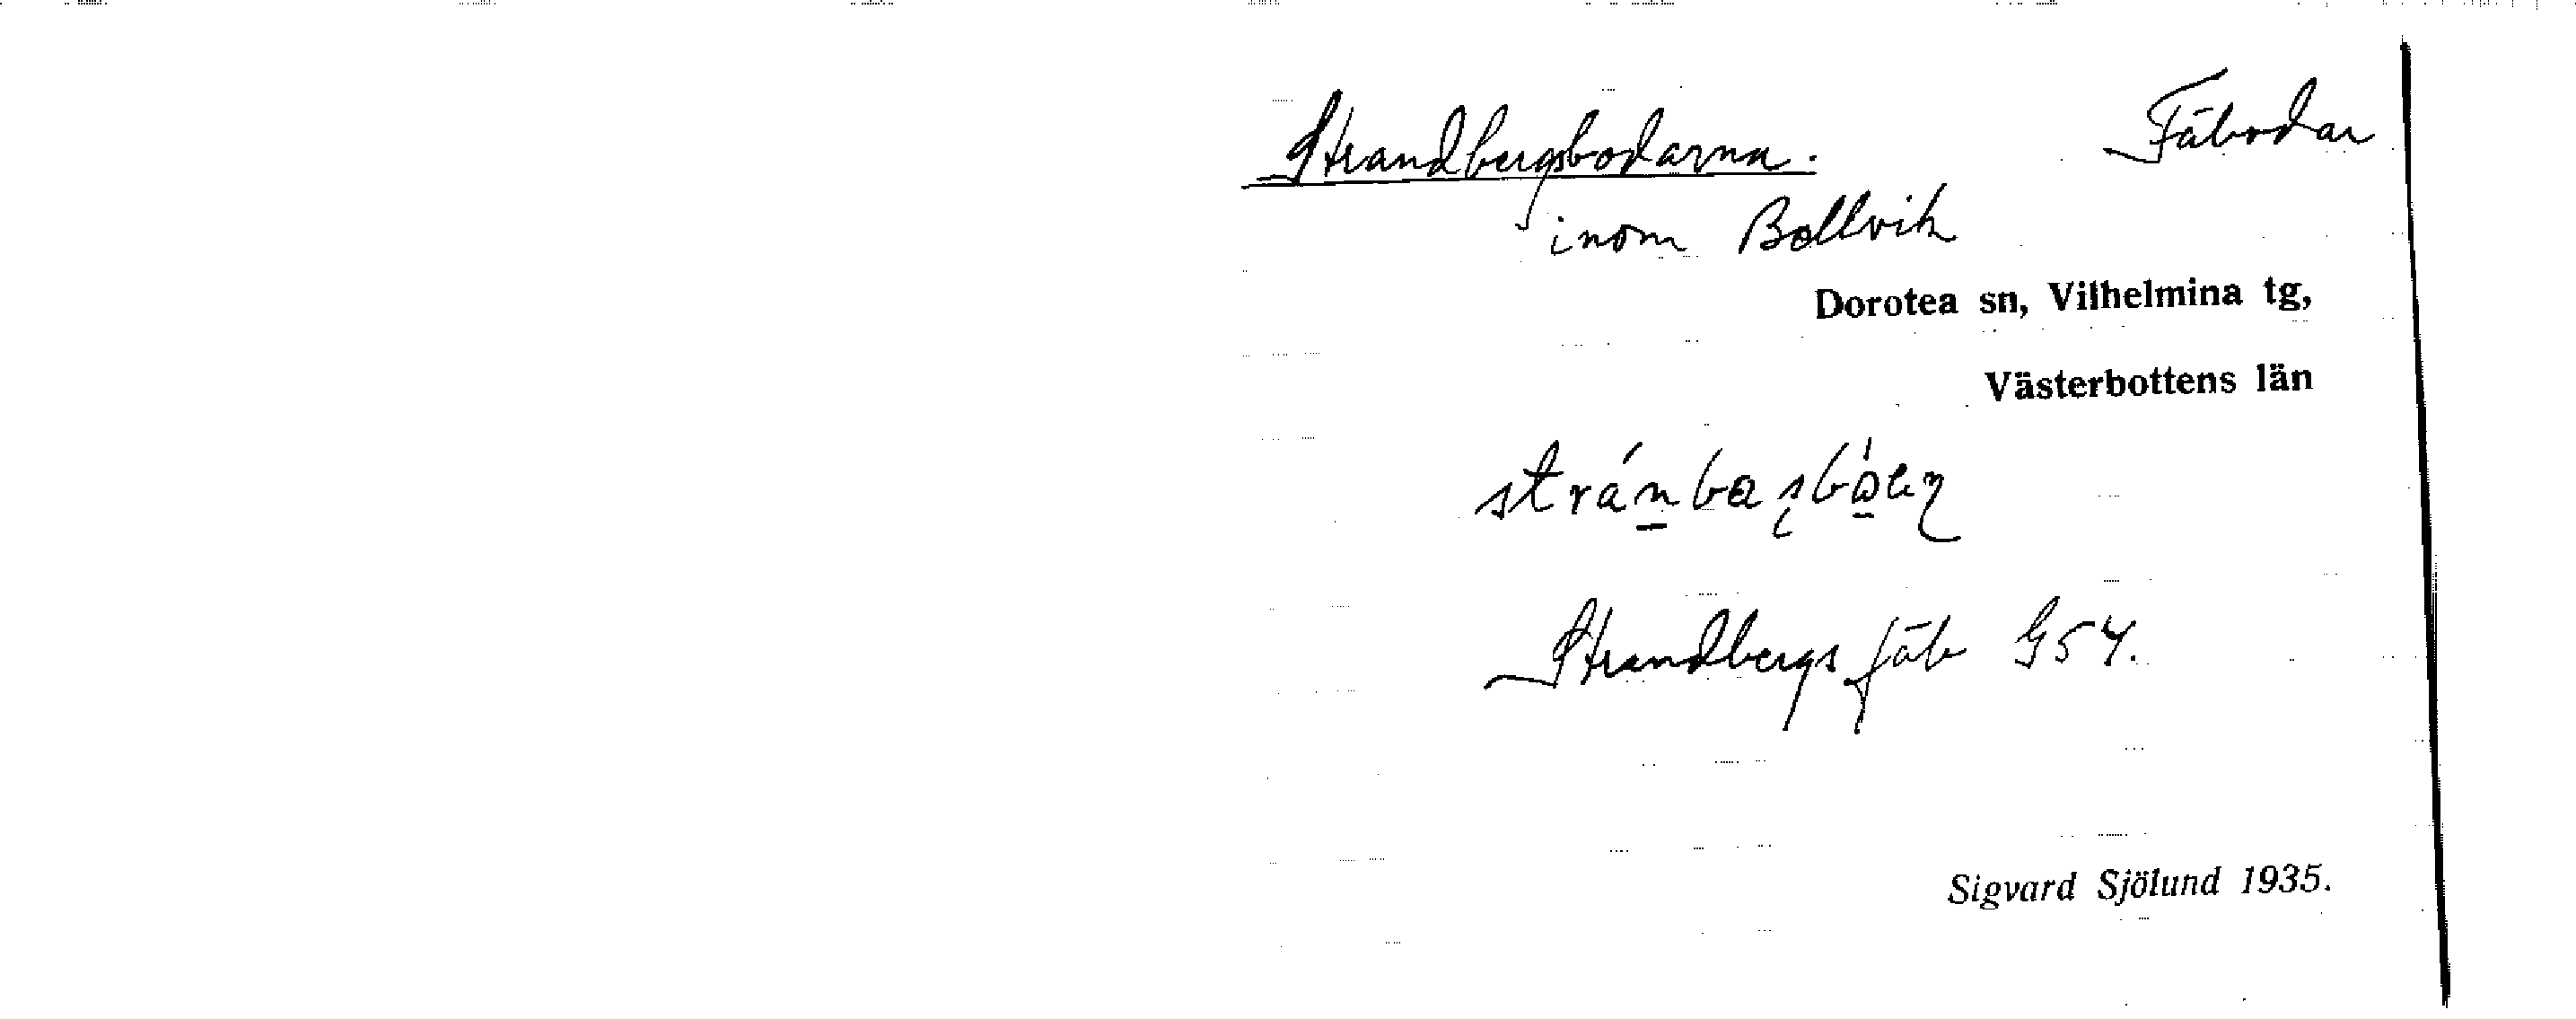 Strandbergsbodarna. Fäbodar
inom Bellvik
Dorotea sn, Vilhelmina tg,
Västerbottens län
Strandbergs fäb G54.
Sigvard Sjölund 1935.